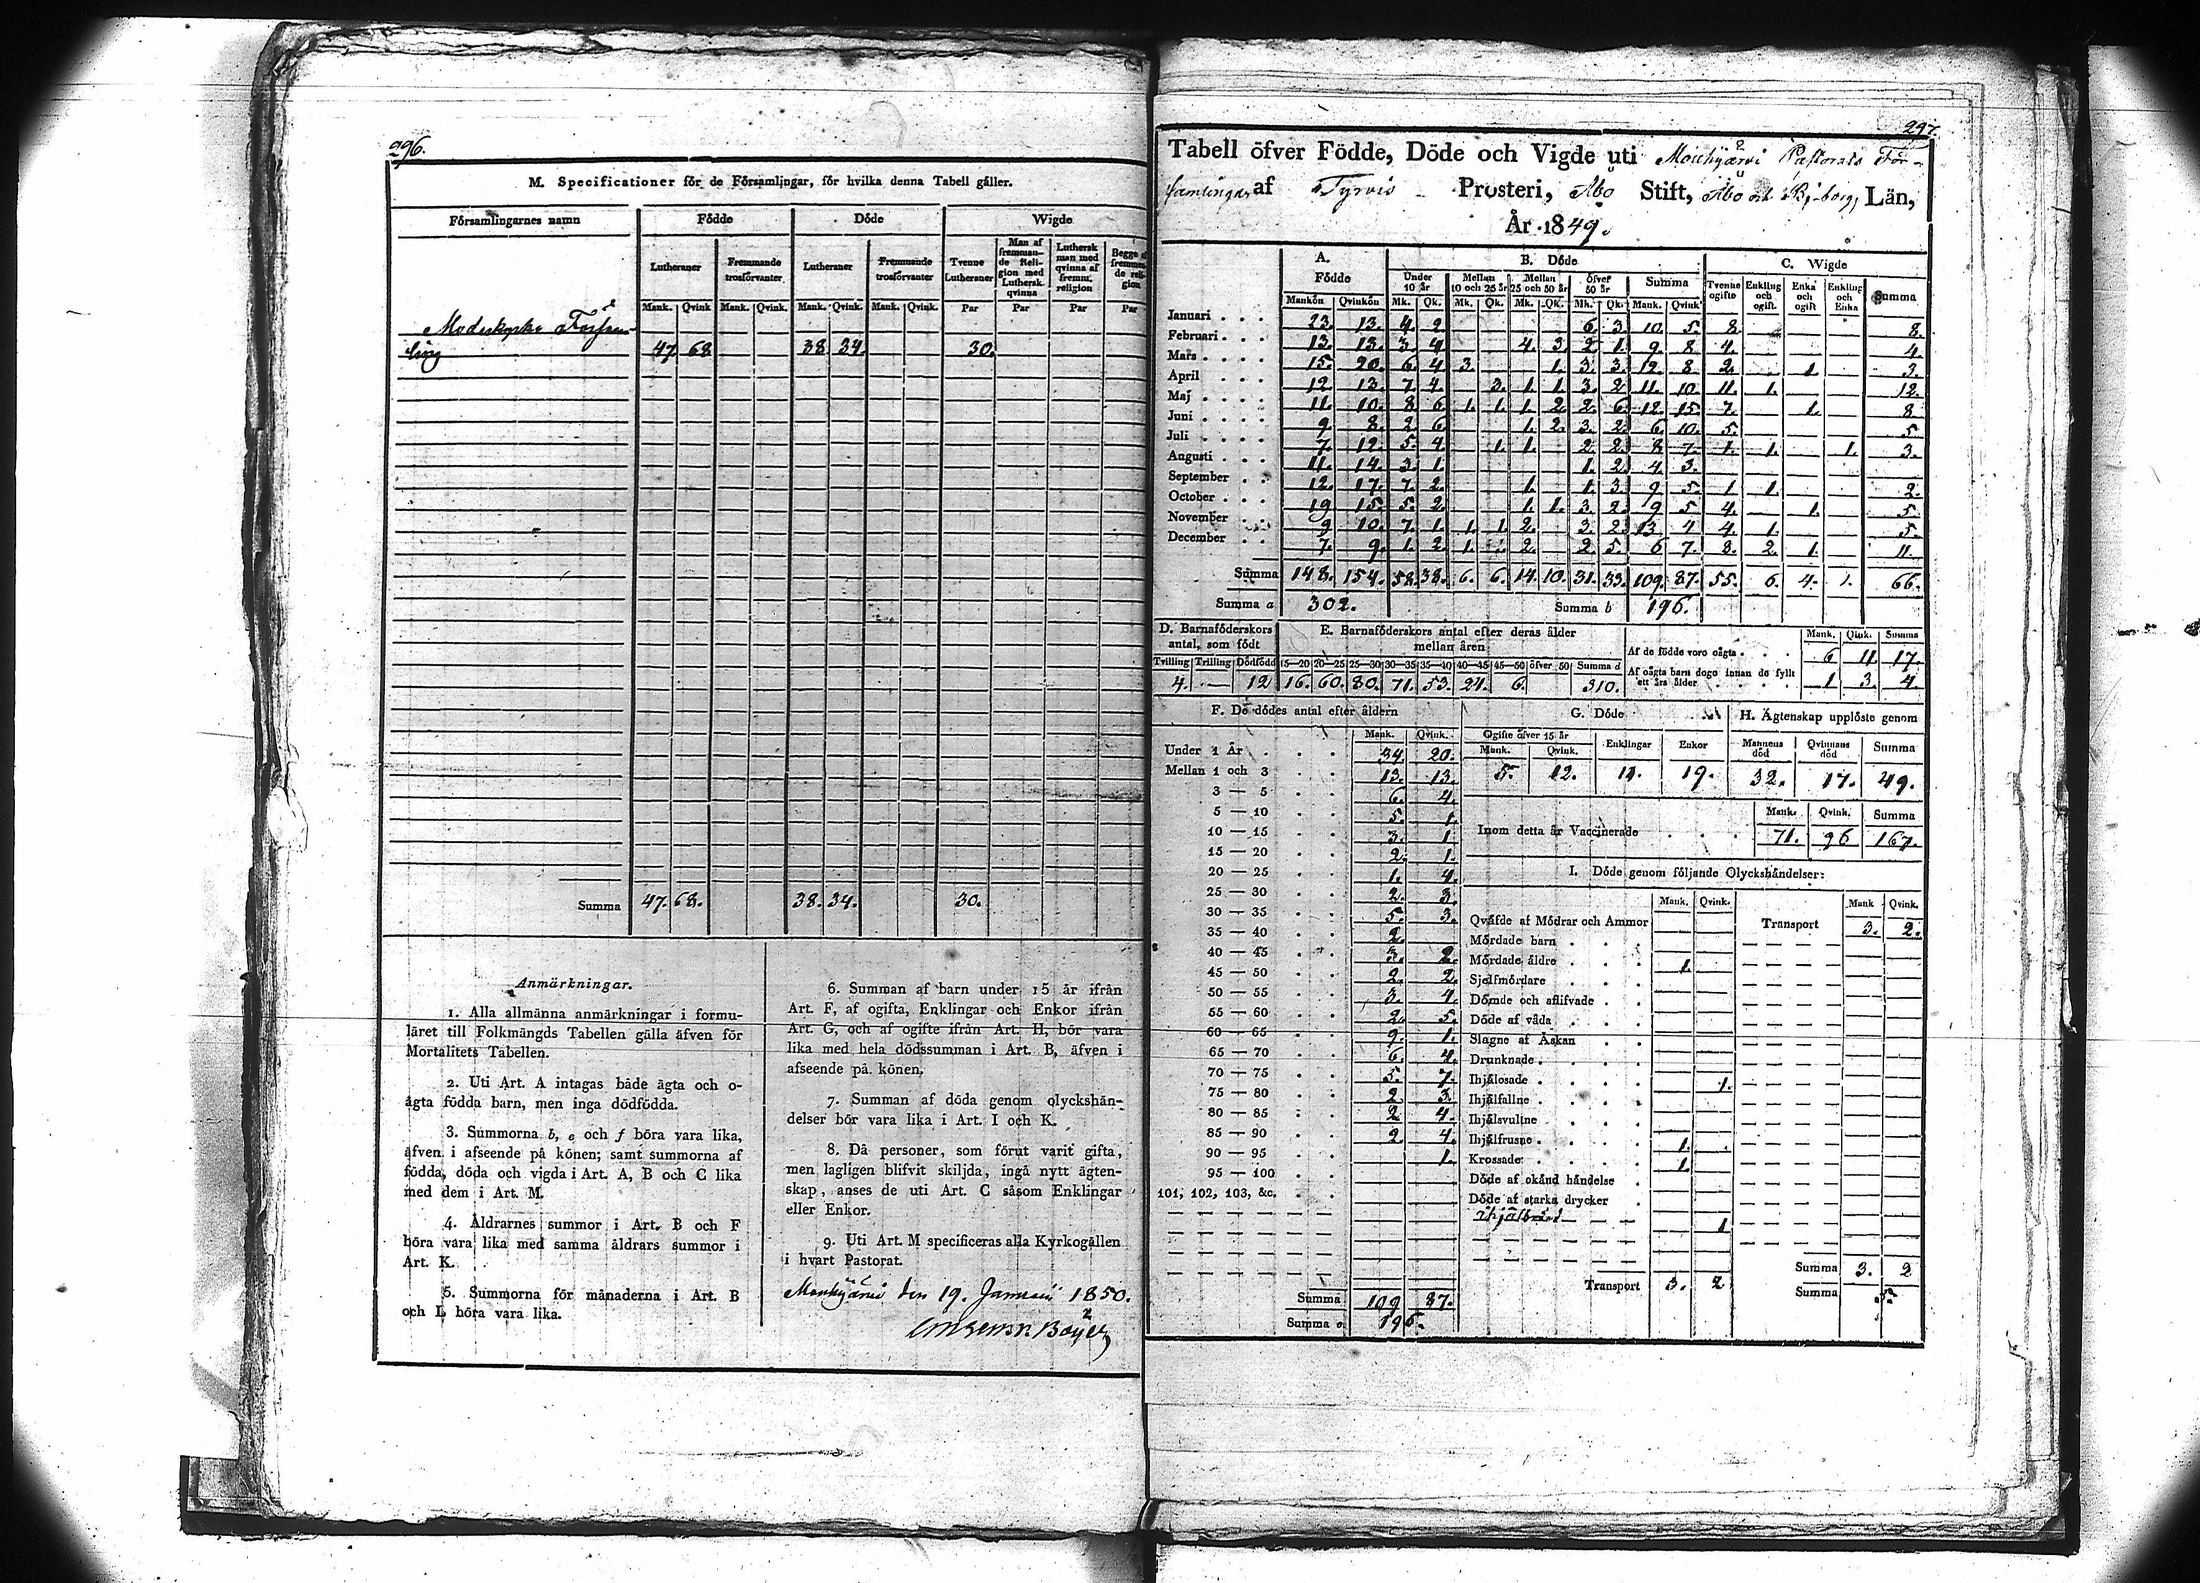 296.
M. Specificationer för de Församlingar, för hvilka denna Tabell gäller.
Församlingarnes namn Födde Döde Wigde
Lutheraner Fremmande trosförvanter Lutheraner Fremmande trosförvanter Tvenne Lutheraner Man af fremmande Religion med Luthersk qvinna Luthersk man med qvinna af fremm. religion
Mank. Qvink Mank. Qvink. Mank. Qvink. Mank. Qvink. Par Par Par Par
Moderkyrko Församling 47 68 38 34. 30.
Summa 47. 68. 38. 34. 30.
Anmärkningar.
1. Alla allmänna anmärkningar i formu-
läret till Folkmängds Tabellen gälla äfven för
Mortalitets Tabellen.
2. Uti Art. A intagas både ägta och o-
ägta födda barn, men inga dödfödda.
3. Summorna b, e och f böra vara lika,
äfven i afseende på könen; samt summorna af
födda, döda och vigda i Art. A, B och C lika
med dem i Art. M.
4. Åldrarnes summor i Art. B och F
böra vara lika med samma åldrars summor i
Art. K.
5. Summorna för månaderna i Art. B
och L böra vara lika.
6. Summan af barn under 15 år ifrån
Art. F, af ogifta, Enklingar och Enkor ifrån
Art. G, och af ogifte ifrån Art. H, bör vara
lika med hela dödssumman i Art. B, äfven i
afseende på könen.
7. Summan af döda genom olyckshän-
delser bör vara lika i Art. I och K.
8. Då personer, som förut varit gifta,
men lagligen blifvit skiljda, ingå nytt ägten-
skap, anses de uti Art. C såsom Enklingar
eller Enkor.
9. Uti Art. M specificeras alla Kyrkogällen
i hvart Pastorat.
Mouhijärvi den 19. Januari 1850.
297.
Tabell öfver Födde, Döde och Vigde uti Mouhijärvi Pastorats För-
samlingar af Tyrvis Prosteri, Åbo Stift, Åbo och B:borgs Län,
År 1849.
A. Födde B. Döde C. Wigde
Under 10 år Mellan 10 och 25 år Mellan 25 och 50 år Öfver 50 år Summa Tvenne ogifte Enkling och ogift. Enka och ogift Enkling och Enka Summa
Mankön Qvinkön Mk. Qk. Mk. Qk. Mk. Qk. Mk. Qk. Mank. Qvink
Januari 23. 13. 4 2 6 3. 10. 5. 8. 8.
Februari 13. 13. 3. 4 4. 3. 2 1. 9. 8 4. 4.
Mars 15. 20. 6. 4 3. 1. 3. 3. 12 8 2. 1. 3.
April 12 13. 7 4. 3. 1 1. 3. 2 11. 10. 11. 1. 12.
Maj 11. 10. 8 6. 1. 1. 1. 2. 2. 6. 12. 15. 7. 1. 8.
Juni 9 8. 2 6. 1. 2. 3. 2. 6. 10. 5. 5.
Juli 7. 12. 5. 4. 1. 1. 2 2. 8 7. 1. 1. 1. 3.
Augusti 11. 14. 3 1. 1. 2 4 3.
September 12. 17. 7 2. 1. 1. 3. 9 5. 1 1. 2.
October 19 15. 5. 2. 1. 1. 3. 2. 9 5 4. 1. 5.
November 9 10. 7. 1. 1. 1. 2. 3. 2 13. 4 4. 1. 5.
December 7. 9. 1. 2 1. 2. 2 5. 6 7. 8. 2. 1. 11.
Summa 148. 154. 58. 38. 6. 6. 14. 10. 31. 33. 109. 87. 55. 6. 4. 1. 66.
Summa a 302. Summa b 196.
D. Barnaföderskors antal, som födt E. Barnaföderskors antal efter deras ålder mellan åren Mank. Qink. Summa
Tvilling Trilling Dödfödd 15—20 20—25 25—30 30—35 35—40 40—45 45—50 öfver 50 Summa d
4. — 12 16. 60. 80. 71. 53. 24. 6. 310.
Af de födde voro oägta 6 11 17.
Af oägta barn dogo innan de fyllt ett års ålder 1 3. 4.
F. De dödes antal efter åldern
Mank. Qvink.
Under 1 År 34. 20.
Mellan 1 och 3 13. 13.
3 — 5 6. 4.
5 — 10 5. 1.
10 — 15 3. 1.
15 — 20 2. 1.
20 — 25 1. 4.
25 — 30 2. 3.
30 — 35 5. 3.
35 — 40 2.
40 — 45 3. 2.
45 — 50 2. 2.
50 — 55 3. 4.
55 — 60 2. 5.
60 — 65 9. 1.
65 — 70 6. 4.
70 — 75 5. 7.
75 — 80 2 3.
80 — 85 2 4.
85 — 90 2. 4.
90 — 95 1.
95 — 100
101, 102, 103, &c.
Summa 109 87.
Summa e. 196.
G. Döde
Ogifte öfver 15 år Enklingar Enkor
Mank. Qvink.
5. 12. 19.
H. Ägtenskap upplöste genom
Mannens död Qvinnans död Summa
32. 17. 49.
Mank. Qvink. Summa
Inom detta år Vaccinerade 71. 96 167.
I. Döde genom följande Olyckshändelser:
Mank. Qvink. Mank Qvink.
Qväfde af Mödrar och Ammor Transport 3. 2.
Mördade barn
Mördade äldre
Sjelfmördare 1.
Dömde och aflifvade
Döde af våda
Slagne af Åskan
Drunknade
Ihjälosade 1.
Ihjälfallne
Ihjälsvultne
Ihjälfrusne 1.
Krossade 1.
Döde af okänd händelse
Döde af starka drycker
1
Transport 3. 2
Summa 3. 2
Summa 5.